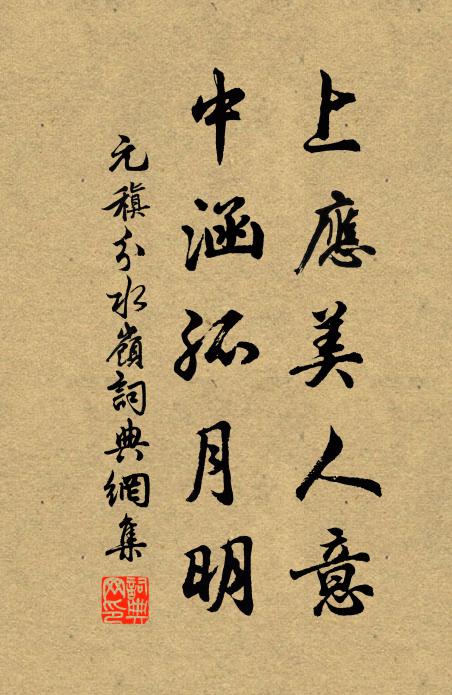 上應美人意
中涵孤月明
元稹分水嶺詞典網集
詞典网印